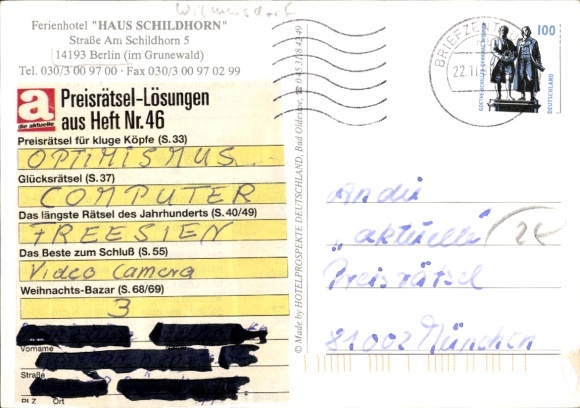 Wilmersdorf
Ferienhotel "HAUS SCHILDHORN"
Straße Am Schildhorn 5
14193 Berlin (im Grunewald)
Tel. 030/3 00 97 00 · Fax 030/3 00 97 02 99
a
die aktuelle
Preisrätsel-Lösungen
aus Heft Nr. 46
Preisrätsel für kluge Köpfe (S. 33)
OPTIMISMUS
Glücksrätsel (S. 37)
COMPUTER
Das längste Rätsel des Jahrhunderts (S. 40/49)
FREESIEN
Das Beste zum Schluß (S. 55)
Video Camera
Weihnachts-Bazar (S. 68/69)
3
Vorname
Straße
PLZ Ort
© Made by HOTELPROSPEKTE DEUTSCHLAND, Bad Oldesloe, ☎ 0 45 31/8 42 49
BRIEFZENTRUM
22.11.
100
GOETHE-SCHILLER-DENKMAL WEIMAR
DEUTSCHLAND
An die
„aktuelle"
24
Preisrätsel
81002 München